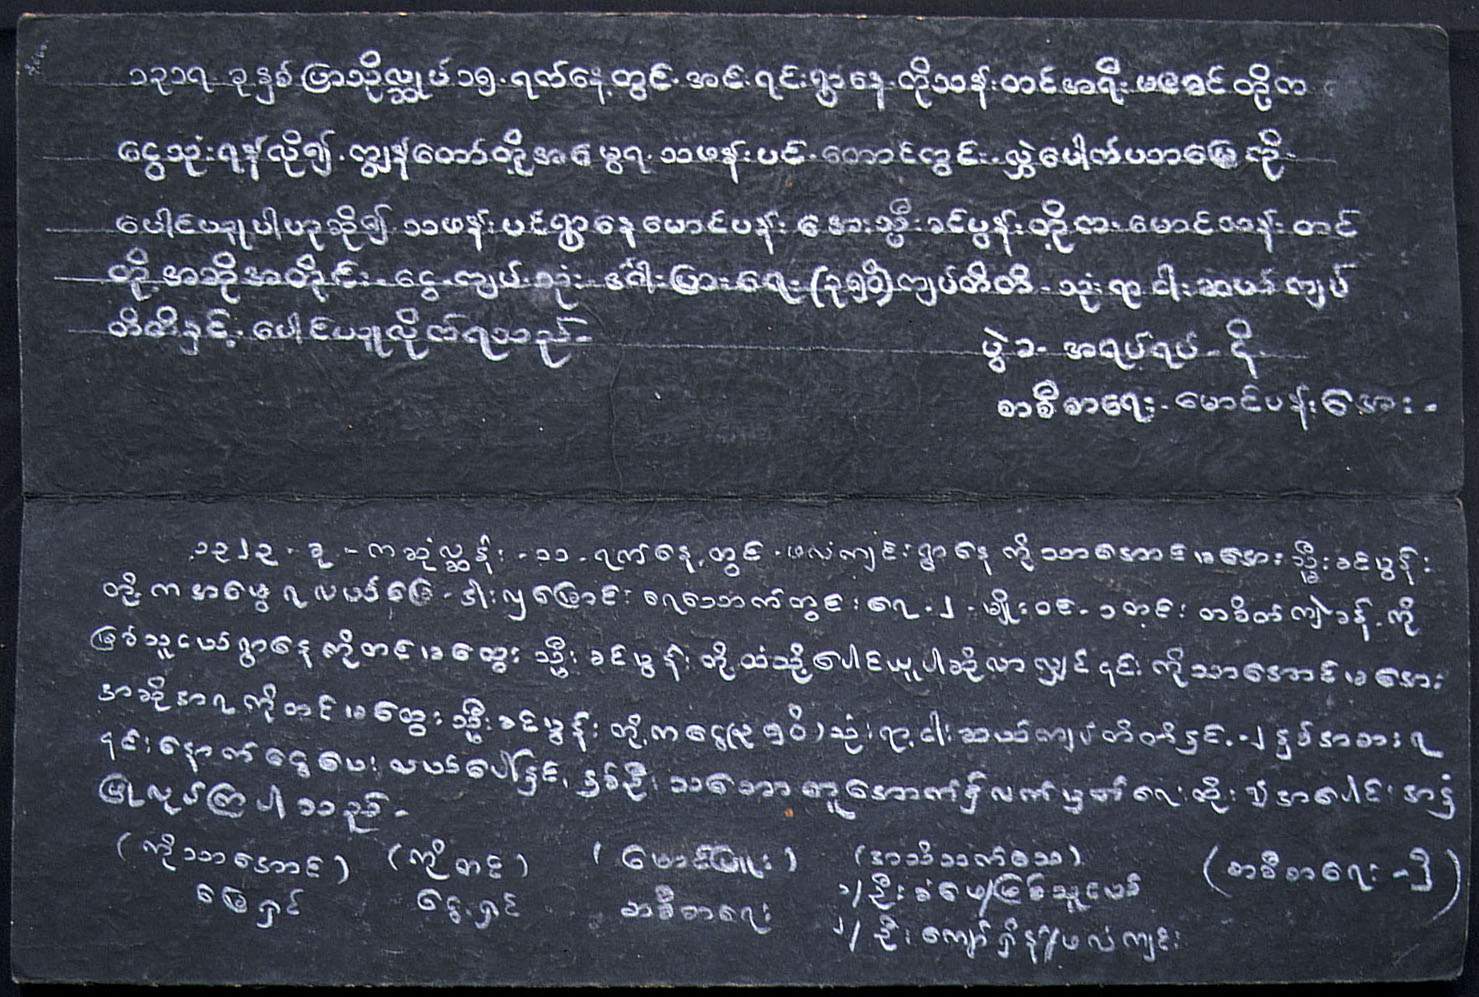 ၁၃၁၇ ခုနှစ် ပြာသိုလ္ဆုပ် ၁၅ ရက်နေ့တွင် အင်းရင်းရွာနေ ကိုသန်းတင် အရီး မခေင် တို့က
ငွေသုံးရန်လို၍ ကျွန်တော်တို့အမွေရ သဖန်းပင် တောင်ကွင်း လှဲပေါက်ပဘမြေကို
ပေါင်ပယူပါဟုဆို၍ သဖန်းပင်ရွာနေ မောင်ပန်းအေး သ္မီးခင်ပွန်းတို့က မောင်သန်းတင်
တို့အဆိုအတိုင်း ငွေကျပ်သုံး ဒင်္ဂါးပြားရေး (၃၅ဝိ) ကျပ်တိတိ သုံးရာငါးဆယ်ကျပ်
တိတိနှင့် ပေါင်ပယူလိုက်ရသည်
ပွဲခ အရပ်ရပ် ငှိ
စာစီစာရေး မောင်ပန်းအေး
၁၃၂၃ ခု ကဆုံလ္ဆန်း ၁၁ ရက်နေ့တွင် ဖလံကျင်းရွာနေ ကိုသာအောင် မအေး သ္မီးခင်ပွန်း
တို့က အမွေရလယ်မြေ ငါးလှမြောင်း ရေသောက်တွင်းရေ ၂ မျိုးဝင် ၁ တင်း တစိတ်ကျဲခန့်ကို
မြစ်သူငယ်ရွာနေ ကိုတင် မထွေး သ္မီးခင်ပွန်းတို့ထံသို့ ပေါင်ယူပါဆိုလာလျှင် ၎င်းကိုသာအောင် မအေး
အဆိုအရ ကိုတင် မထွေး သ္မီးခင်ပွန်းတို့က ငွေ (၃၅ဝိ) သုံးရာ့ငါးဆယ်ကျပ်တိတိနှင့် ၂ နှစ်အစားရ
၎င်းနောက် ငွေပေးလယ်ပေါ်နှင့် နှစ်ဦးသဘောတူအောက်၌ လက်မှတ်ရေးထိုး၍ အပေါင်းအနှံ
ပြုလုပ်ကြပါသည်
(ကိုသာအောင်) (ကိုတင်) (မောင်ဖြူး) (အသိသက်သေ) (စာစီစာရေး - ၁ိ)
မြေရှင် ငွေရှင် စာစီစာရေး ၁/ဦးခံဖေ/မြစ်သူငယ်
၂/ဦးကျော်ရှိန်/ဖလံကျင်း